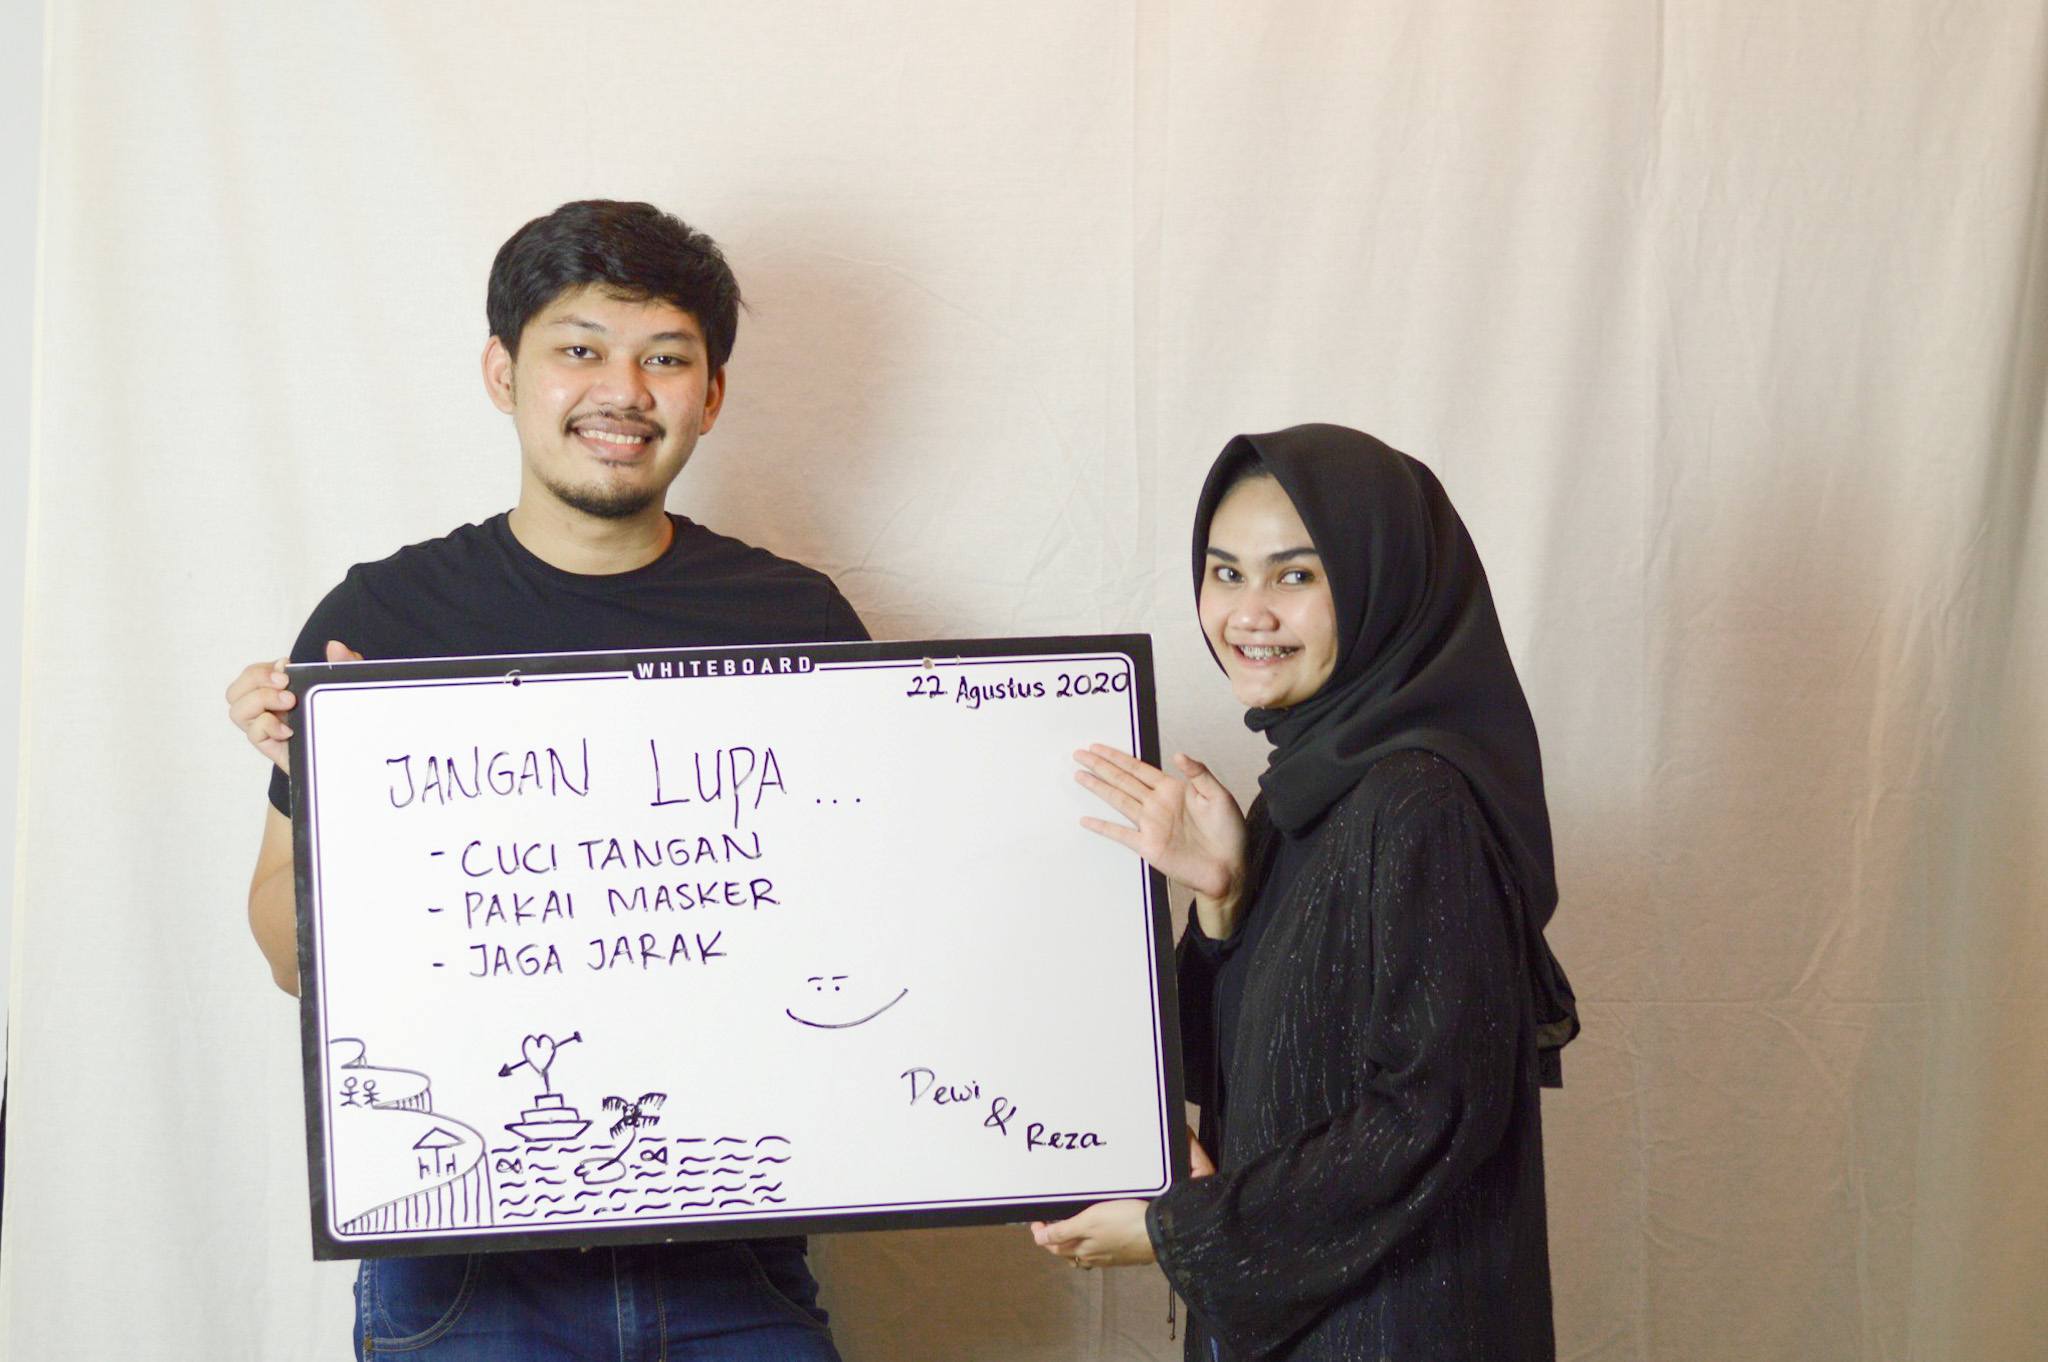 WHITEBOARD
22 Agustus 2020
JANGAN LUPA...
- CUCI TANGAN
- PAKAI MASKER
- JAGA JARAK
Dewi
&
Reza